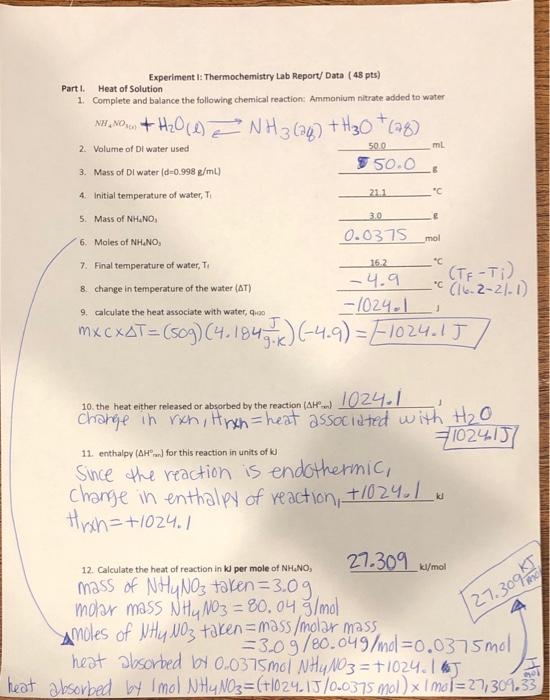 Experiment I: Thermochemistry Lab Report/ Data ( 48 pts)
Part I. Heat of Solution
1. Complete and balance the following chemical reaction: Ammonium nitrate added to water
NH₄NO₃(s) + H2O(l) ⇌ NH3(aq) + H3O+(aq)
2. Volume of DI water used 50.0 mL
3. Mass of DI water (d=0.998 g/mL) 50.0 g
4. Initial temperature of water, Tᵢ 21.1 °C
5. Mass of NH₄NO₃ 3.0 g
6. Moles of NH₄NO₃ 0.0375 mol
7. Final temperature of water, Tf 16.2 °C
8. change in temperature of the water (ΔT) -4.9 °C (TF-Ti)
(16.2-21.1)
9. calculate the heat associate with water, qH2O -1024.1 J
m×c×ΔT=(50g)(4.184 J/g·K)(-4.9)=-1024.1 J
10. the heat either released or absorbed by the reaction (ΔH°rxn) 1024.1 J
Change in rxn, Hrxn = heat associated with H2O
=1024.1J
11. enthalpy (ΔH°rxn) for this reaction in units of kJ
Since the reaction is endothermic,
Change in enthalpy of reaction, +1024.1 kJ
Hrxn=+1024.1
12. Calculate the heat of reaction in kJ per mole of NH₄NO₃ 27.309 kJ/mol
mass of NH4NO3 taken=3.0g
molar mass NH4NO3 = 80.04 g/mol
moles of NH4NO3 taken=mass/molar mass
=3.0g/80.049/mol=0.0375mol
heat absorbed by 0.0375mol NH4NO3=+1024.1 J
heat absorbed by 1mol NH4NO3=(+1024.1J/0.0375mol)×1mol=27,309.33 J/mol
27.309 KJ/mol